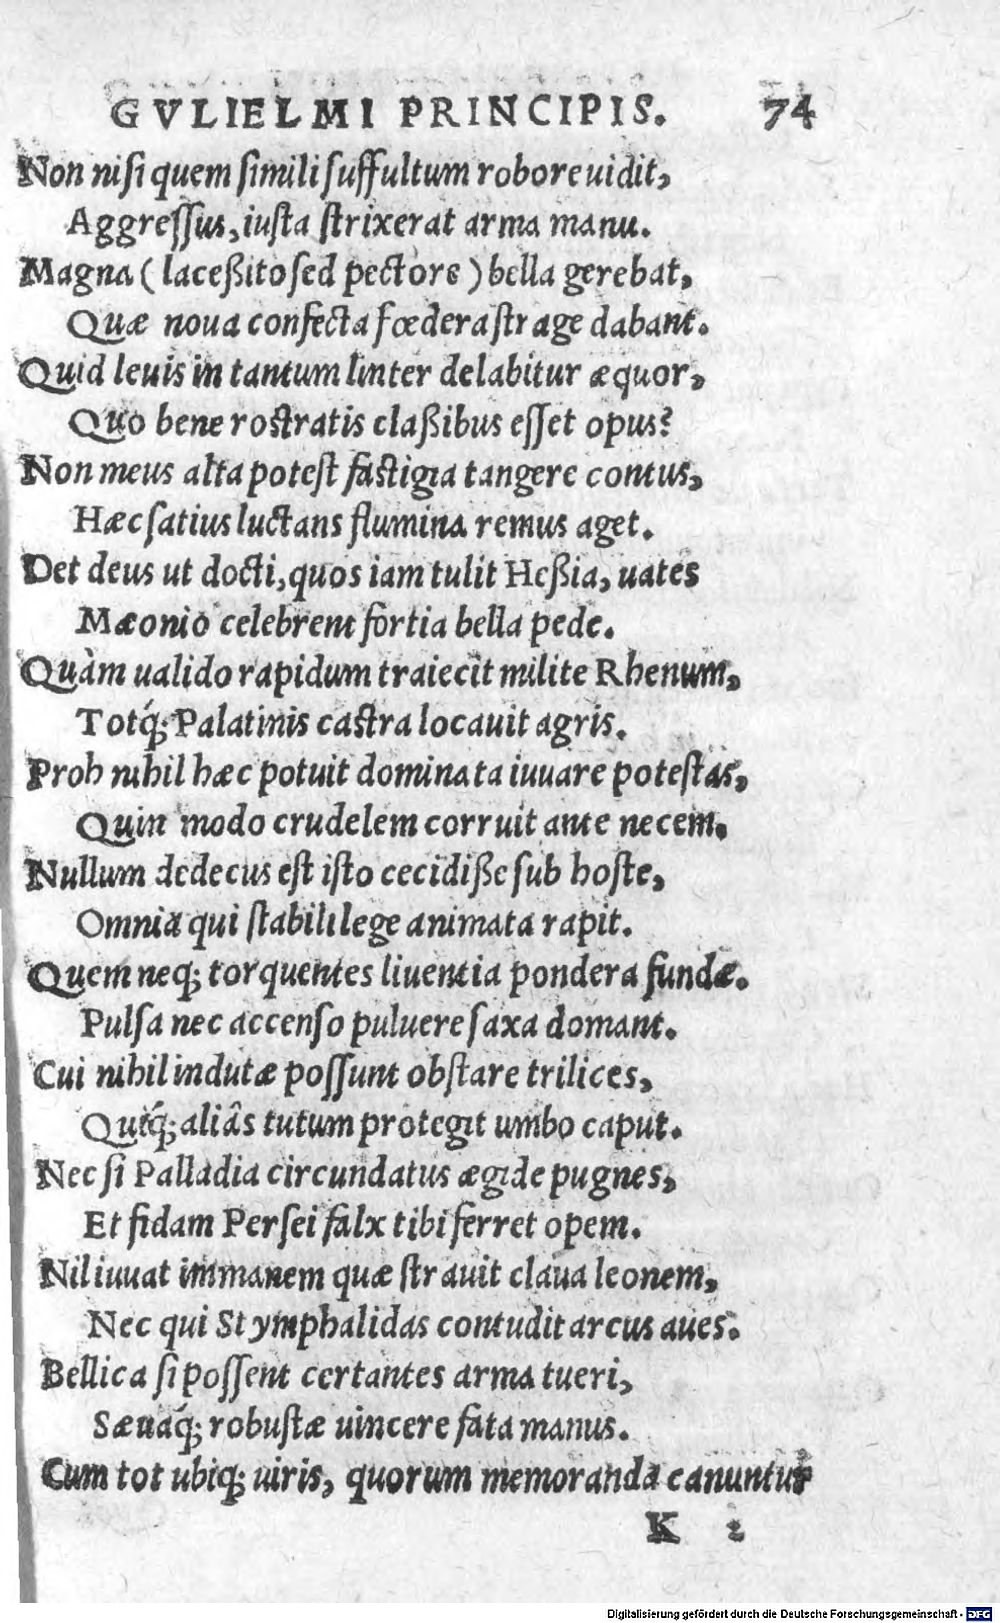 GVLIELMI PRINCIPIS. 74
Non niſi quem ſimili ſuffultum robore uidit,
Aggreſſus, iuſta ſtrixerat arma manu.
Magna (laceßito ſed pectore) bella gerebat,
Quæ noua confecta fœdera ſtrage dabant.
Quid leuis in tantum linter delabitur æquor,
Quo bene roſtratis claßibus eſſet opus?
Non meus alta poteſt faſtigia tangere contus,
Hæc ſatius luctans flumina remus aget.
Det deus ut docti, quos iam tulit Heßia, uates
Mæonio celebrent fortia bella pede.
Quàm ualido rapidum traiecit milite Rhenum,
Totq́; Palatinis caſtra locauit agris.
Proh nihil hæc potuit dominata iuuare poteſtas,
Quin modo crudelem corruit ante necem.
Nullum dedecus eſt iſto cecidiße ſub hoſte,
Omnia qui ſtabili lege animata rapit.
Quem neq; torquentes liuentia pondera fundæ.
Pulſa nec accenſo puluere ſaxa domant.
Cui nihil indutæ poſſunt obſtare trilices,
Quiq́; aliâs tutum protegit umbo caput.
Nec ſi Palladia circundatus ægide pugnes,
Et fidam Perſei falx tibi ferret opem.
Nil iuuat immanem quæ ſtrauit claua leonem,
Nec qui Stymphalidas contudit arcus aues.
Bellica ſi poſſent certantes arma tueri,
Sæuaq́; robuſtæ uincere fata manus.
Cum tot ubiq; uiris, quorum memoranda canuntur
K 2
Digitalisierung gefördert durch die Deutsche Forschungsgemeinschaft - DFG